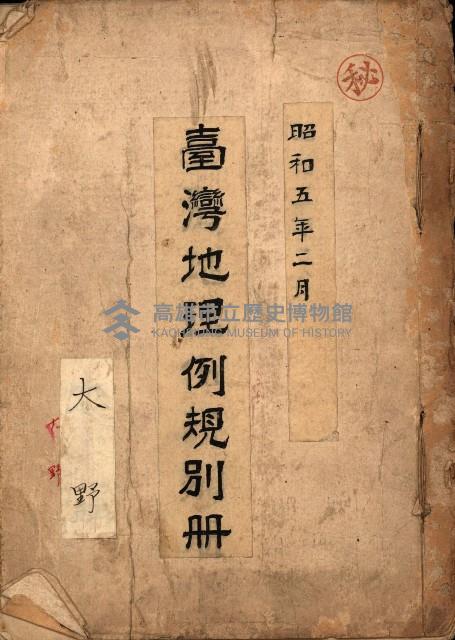 秘
昭和五年二月
臺灣地理例規別冊
高雄市立歷史博物館
KAOHSIUNG MUSEUM OF HISTORY
大野
大野